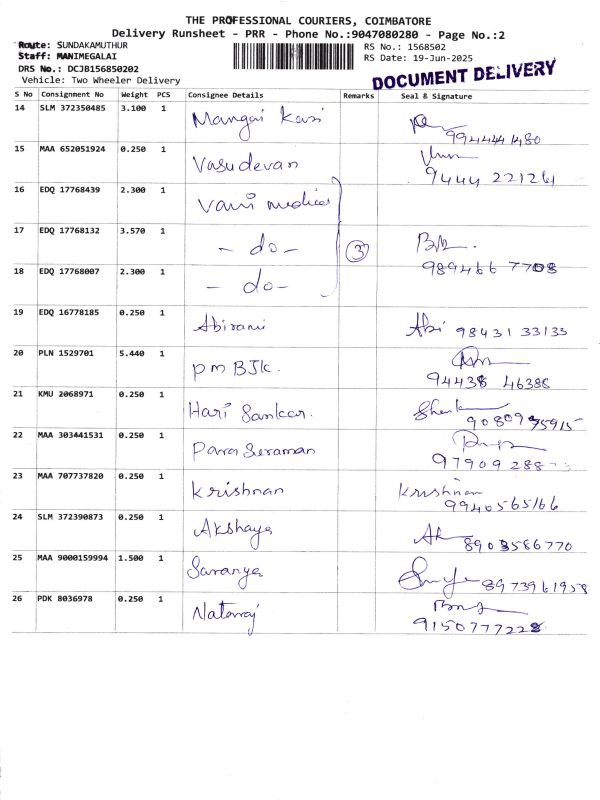 THE PROFESSIONAL COURIERS, COIMBATORE
Delivery Runsheet - PRR - Phone No.:9047080280 - Page No.:2
Route: SUNDAKAMUTHUR
RS No.: 1568502
Staff: MANIMEGALAI
RS Date: 19-Jun-2025
DRS No.: DCJB156850202
DOCUMENT DELIVERY
Vehicle: Two Wheeler Delivery
S No Consignment No Weight PCS Consignee Details Remarks Seal & Signature
14 SLM 372350485 3.100 1 Mangai Kasi
15 MAA 652051924 0.250 1 Vasudevan
9444 221261
16 EDQ 17768439 2.300 1 Vani medicas
17 EDQ 17768132 3.570 1 - do - 3
18 EDQ 17768007 2.300 1 - do - 989466 7708
19 EDQ 16778185 0.250 1 Abirami Abi 98431 33133
20 PLN 1529701 5.440 1 PM BJK.
94438 46386
21 KMU 2068971 0.250 1 Hari Sankar.
22 MAA 303441531 0.250 1 Parra Suraman
97909 288
23 MAA 707737820 0.250 1 Krishnan Krishnan
9940565166
24 SLM 372390873 0.250 1 Akshaya Ak 8903586770
25 MAA 9000159994 1.500 1 Saranya 8973961958
26 PDK 8036978 0.250 1 Natarraj
9150777228